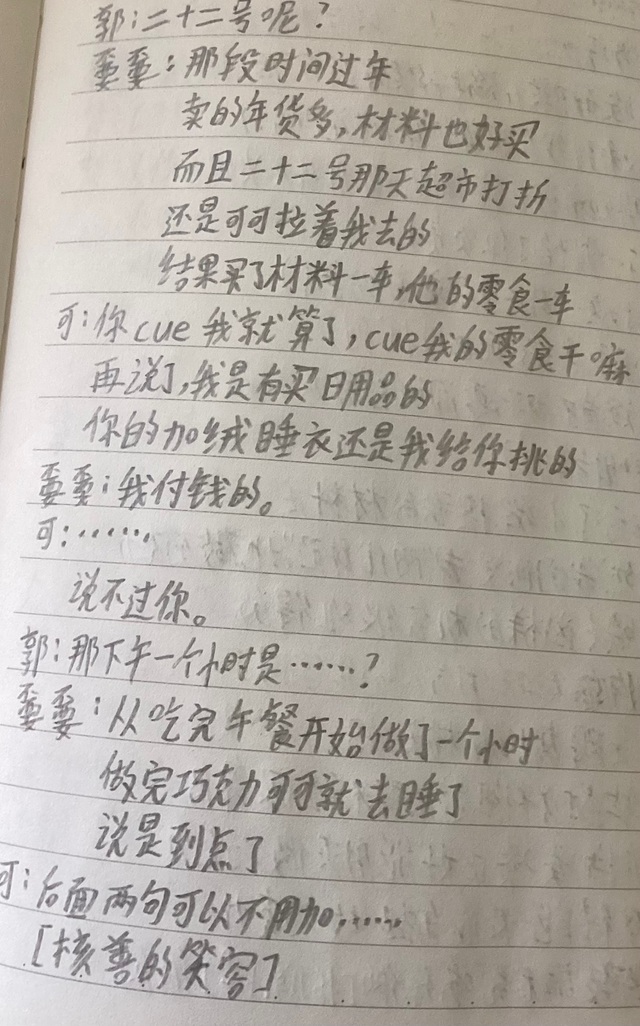 郭：二十二号呢？
耍耍：那段时间过年
卖的年货多，材料也好买
而且二十二号那天超市打折
还是可可拉着我去的
结果买了材料一车，他的零食一车
可：你cue我就算了，cue我的零食干嘛
再说了，我是有买日用品的
你的加绒睡衣还是我给你挑的
耍耍：我付钱的。
可：……
说不过你。
郭：那下午一个小时是……？
耍耍：从吃完午餐开始做了一个小时
做完巧克力可可就去睡了
说是到点了
可：后面两句可以不用加……
[核善的笑容]